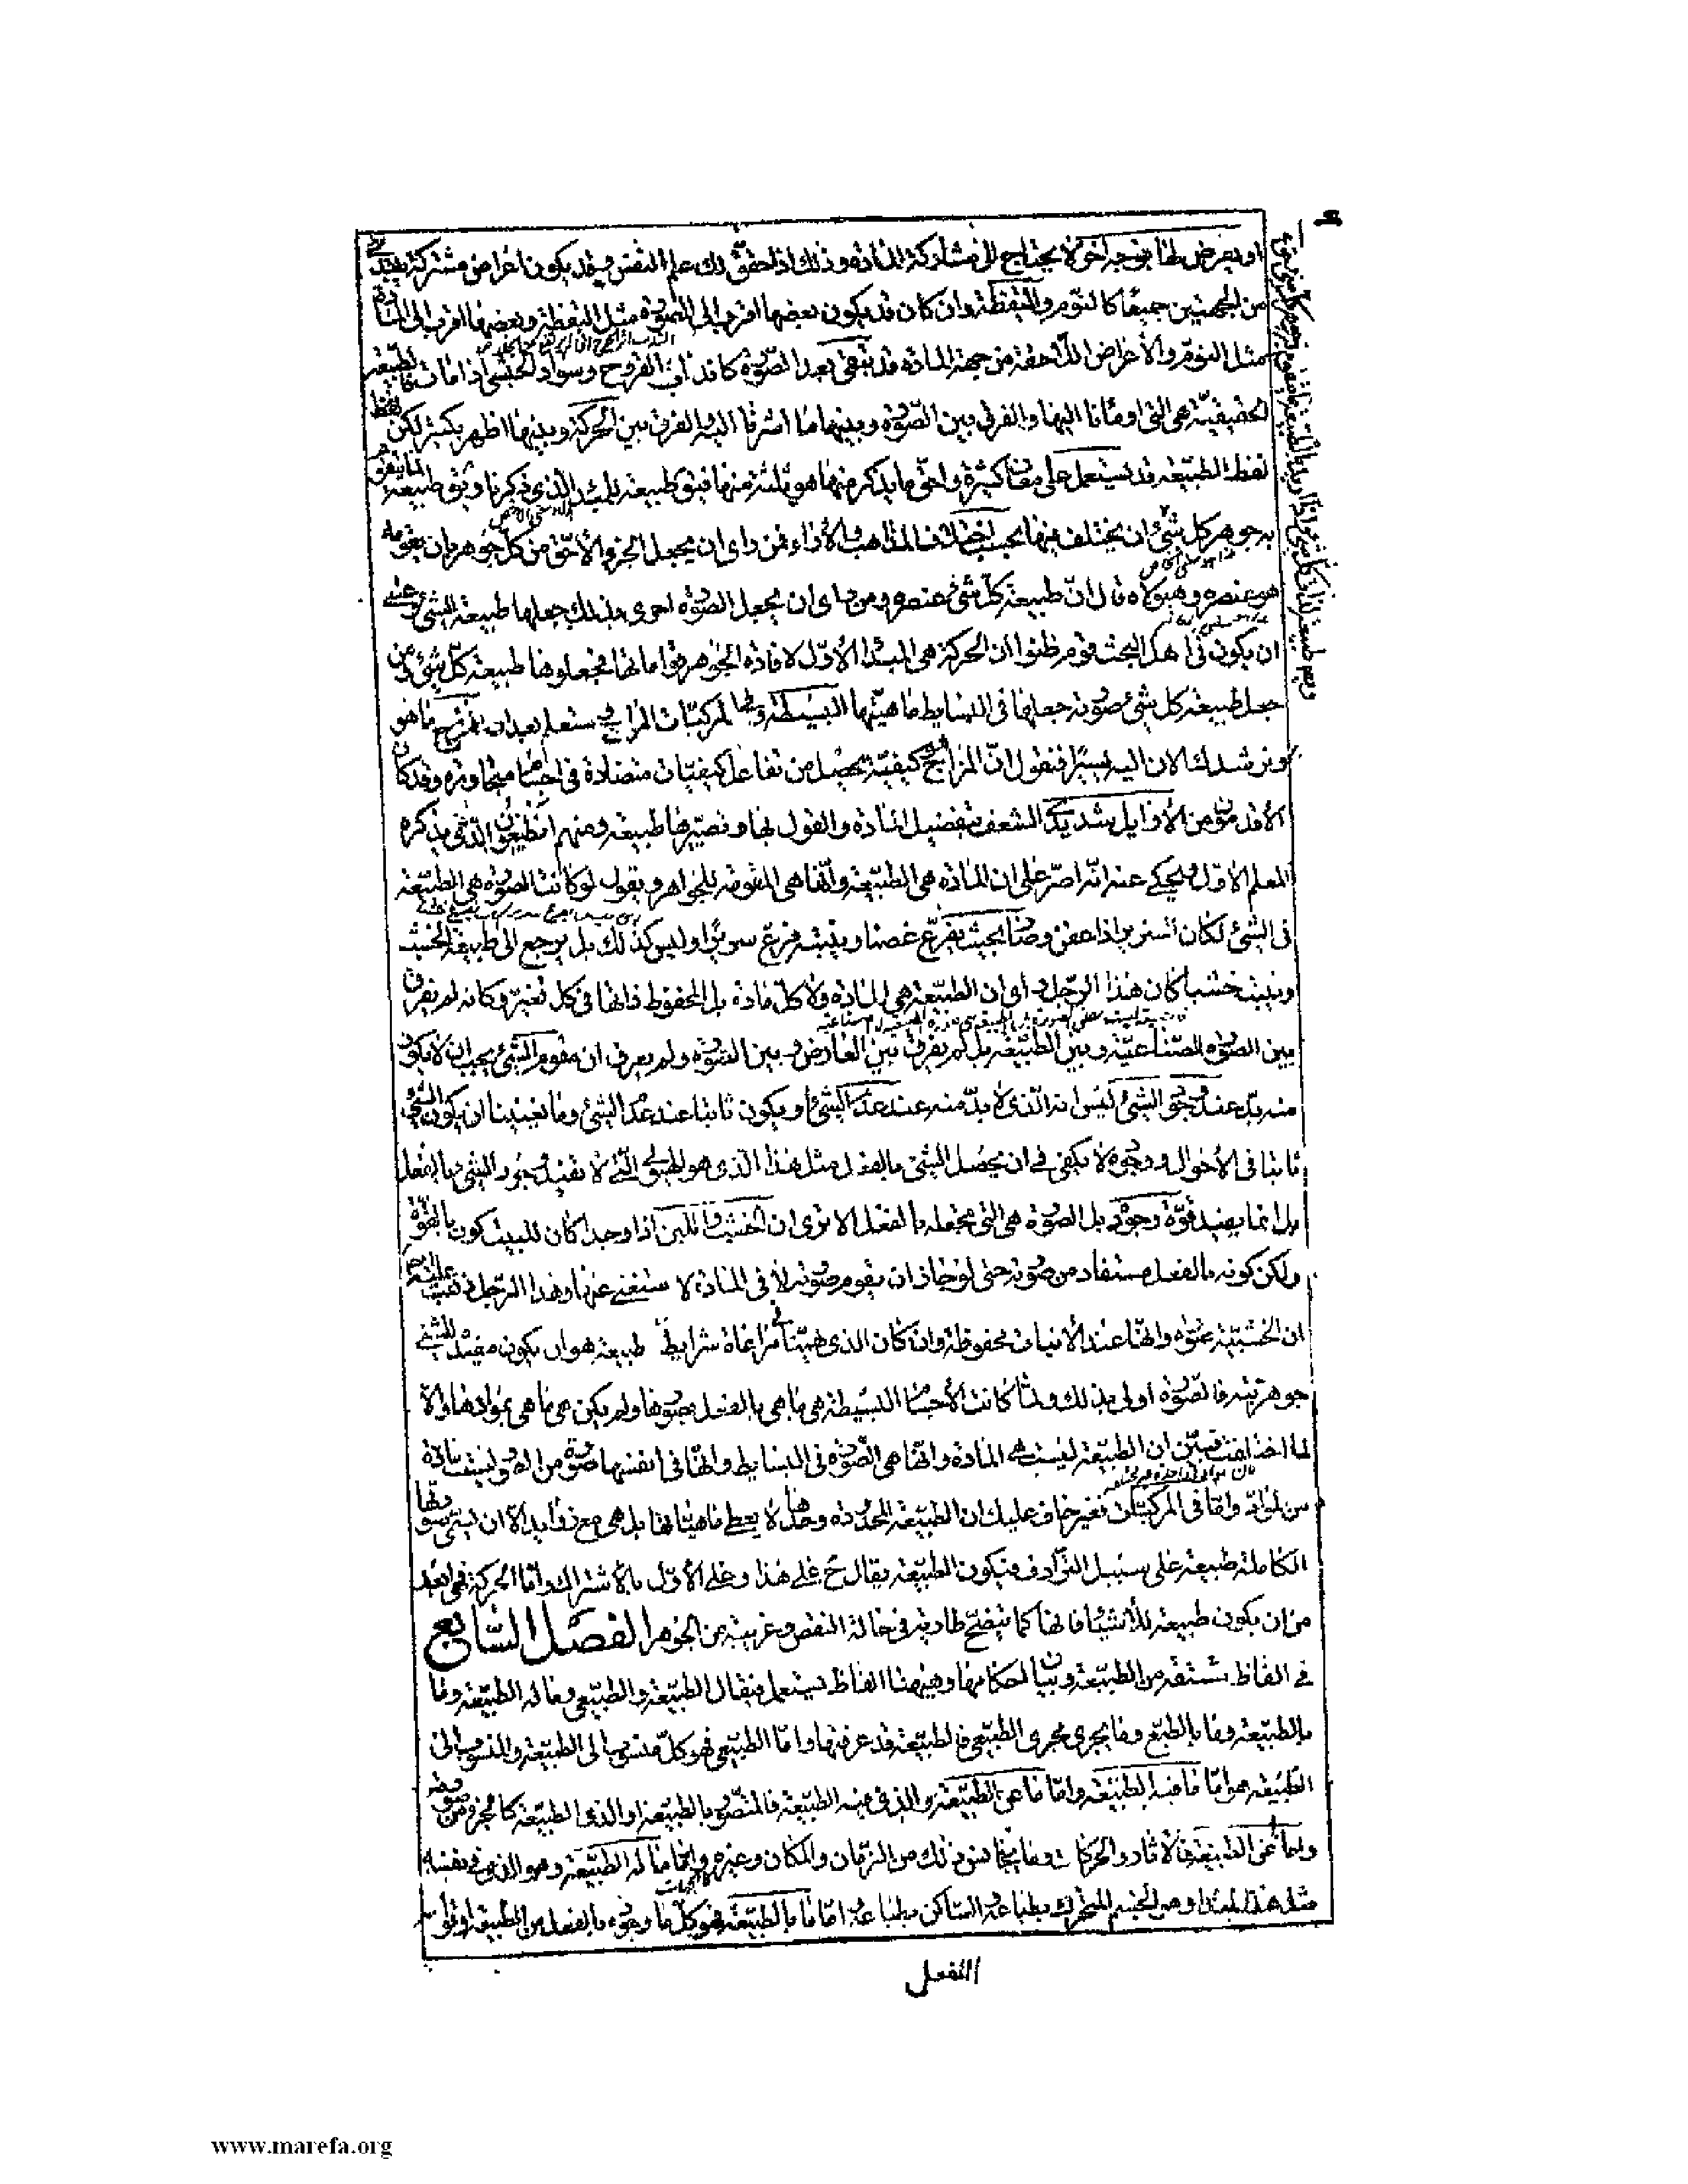 او يعرض لها بتوجه اخر لا يحتاج الى مشاركة المادة وذلك اذا حقق لك علم النفس وقد يكون اعراض مشتركة
من الجهتين جميعا كالنوم واليقظة وان كان قد يكون بعضها اقرب الى الصورة مثل اليقظة وبعضها اقرب الى المادة
مثل النوم والأعراض اللاحقة من جهة المادة قد تبقى بعد الصورة كاندآب القروح وسواد الحبشى اذا مات فالطبيعة
الحقيقية هى التى اومأنا اليها والفرق بين الصورة وبينها ما اشرنا اليه والفرق بين الحركة وبينها اظهر بكثير لكن لفظ
لفظ الطبيعة قد يستعمل على معان كثيرة واحق ما يذكر منها هو ثلثة منها فيق طبيعة للمبدء الذى ذكرناه ويق طبيعة لما يتقوم
به جوهر كل شئ ان يختلف فيها بحسب اختلاف المذاهب والأراء فمن راى ان يجعل الجزو الأحق من كل جوهر بان يقومه
هو عنصره وهيولاه قال ان طبيعة كل شئ عنصره ومن راى ان يجعل الصورة احرى بذلك جعلها طبيعة الشئ وعسى
ان يكون فى اهل البحث قوم ظنوا ان الحركة هى المبدأ الأول لافادة الجواهر قواماتها فجعلوها طبيعة كل شئ ومن
جعل طبيعة كل شئ صورته جعلها فى البسايط ماهيتها البسيطة وفى المركبات المزاج وستعلم بعد ان المزاج ما هو
ونرشدك الان اليه يسيرا فنقول ان المزاج كيفية تحصل من تفاعل كيفيات متضادة فى اجسام متجاورة وقد كان
الأقدمون من الأوايل شديدى الشعف بتفضيل المادة والقول بها وتصييرها طبيعة ومنهم انطيفون الذى يذكره
المعلم الاول ويحكى عنه انه اصر على ان المادة هى الطبيعة وانها هى المقومة للجواهر ويقول لو كانت الصورة هى الطبيعة
فى الشئ لكان السرير اذا عفن وصار بحيث يفرع غصنا وينبته فرع سريرا وليس كذلك بل يرجع الى طبيعة الخشب
وينبت خشبا كان هذا الرجل راى ان الطبيعة هى المادة ولا كل مادة بل المحفوظ ذاتها فى كل تغير وكانه لم يفرق
بين الصورة الصناعية وبين الطبيعة بل لم يفرق بين العارض وبين الصورة ولم يعرف ان مقوم الشئ يجب ان لا يكون
منه بد عند وجود الشئ ليس انه الذى لا بد منه عند عدم الشئ او يكون ثابتا عند عدم الشئ وما يغنينا ان يكون الشئ
ثابتا فى الأحوال ووجوده لا يكفى فى ان يحصل الشئ بالفعل مثل هذا الذى هو الهيولى التى لا تفيد وجود الشئ بالفعل
بل انما يفيد قوة وجوده بل الصورة هى التى تجعله بالفعل الا ترى ان الخشب واللبن اذا وجدا كان للبيت كون بالقوة
ولكن كونه بالفعل مستفاد من صورته حتى لو جاز ان يقوم صورته لا فى المادة لا ستغنى عنها وهذا الرجل ذهب عليه ايضا
ان الخشبية صورة وانها عند الأنبات محفوظة وان كان الذى يهمنا فى مراعاة شرايط طبيعة هو ان يكون مفيد للشئ
جوهريته فالصورة اولى بذلك ولما كانت الأجسام البسيطة هى ما هى بالفعل بصورها ولم يكن هى ما هى بموادها والا
لما اختلفت فبين ان الطبيعة ليست هى المادة وانها هى الصورة فى البسايط وانها فى انفسها صورة من الصور وليست مادة
من المواد واما فى المركبات فغير خاف عليك ان الطبيعة المحدودة وحدها لا يعطى ماهياتها بل هى مع زوايد الا ان يسمى صورتها
الكاملة طبيعة على سبيل الترادف فيكون الطبيعة يقال ح على هذا وعلى الأول بالأشتراك واما الحركة فهى ابعد
من ان يكون طبيعة للأشياء فانها كما يتضح طارية فى حالة النقص وغريبة من الجوهر الفصل السابع
فى الفاظ مشتقة من الطبيعة وبيان احكامها وهيهنا الفاظ يستعمل فيقال الطبيعة والطبيعى وما له الطبيعة وما
بالطبيعة وما بالطبع وما يجرى مجرى الطبيعى فالطبيعة قد عرفتها واما الطبيعى فهو كل منسوب الى الطبيعة والمنسوب الى
الطبيعة هو اما ما فيه الطبيعة واما ما عن الطبيعة والذى فيه الطبيعة فالمتصور بالطبيعة او الذى الطبيعة كالجزء من صورته
واما ما عن الطبيعة فالأثار والحركات وما يجانس ذلك من الزمان والمكان وغيره واما ما له الطبيعة وهو الذى فى نفسه
مثل هذا المبدأ وهو الجسم المتحرك بطباعه والساكن بطباعه اما ما بالطبيعة فهو كل ما وجوده بالفعل من الطبيعة او قوامه
بالفعل
www.marefa.org